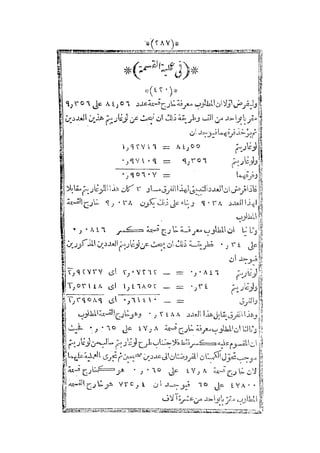 *(٢٨٧)*
*(فى عملية القسمة)*
*(٤٢٠)*
وليفرض أولا ان المطلوب معرفة خارج قسمة عدد ٨٤,٥٦ على ٩,٣٥٦
مقربا بواحد من الف وطريقة ذلك ان يبحث عن لوغاريتم هذين العددين
ثم يؤخذ فرقهما فيوجد ان
لوغاريتم ٨٤,٥٥ = ١,٩٢٧١٦
ولوغاريتم ٩,٣٥٦ = ٠,٩٧١٠٩
وفرقهما = ٠,٩٥٦٠٧
فاذا فرض ان العدد لهذا الفرق مساو ٣ كان هذا اللوغاريتم مقابلا
لهذا العدد ٩٠٣٨ وبناء على ذلك يكون ٩,٠٣٨ خارج القسمة
المطلوب
وثانيا ان المطلوب معرفة خارج قسمة كسر ٠,٠٨٤٦
على ٠,٣٤ فطريقة ذلك ان يبحث عن لوغاريتم العددين المذكورين
فيوجد ان
لوغاريتم ٠,٠٨٤٦ = — ١,٠٧٢٦٢ اى ٢,٩٢٧٣٧
ولوغاريتم ٠,٣٤ = — ٠,٤٦٨٥٢ اى ١,٥٣١٤٨
والفرق = — ٠,٦٠٤١٠ اى ١,٣٩٥٨٩
وهذا الفرق يقابل هذا العدد ٠,٢٤٨٨ وهو خارج القسمة المطلوب
وثالثا ان المطلوب معرفة خارج قسمة ٤٧,٨ على ٠,٠٦٥ فحيث
ان المقسوم عليه كسر فقط فلاجتناب طرح لوغاريتم سالب من لوغاريتم
موجب تحول الكميتان المفروضتان الى عددين ثم تجرى العملية عليهما
لان خارج قسمة ٤٧,٨ على ٠,٠٦٥ هو كخارج قسمة
٤٧٨٠٠ على ٦٥ فيوجد ان ٧٣٥,٤ هو خارج القسمة
المطلوب مقربا بواحد من عشرة آلاف